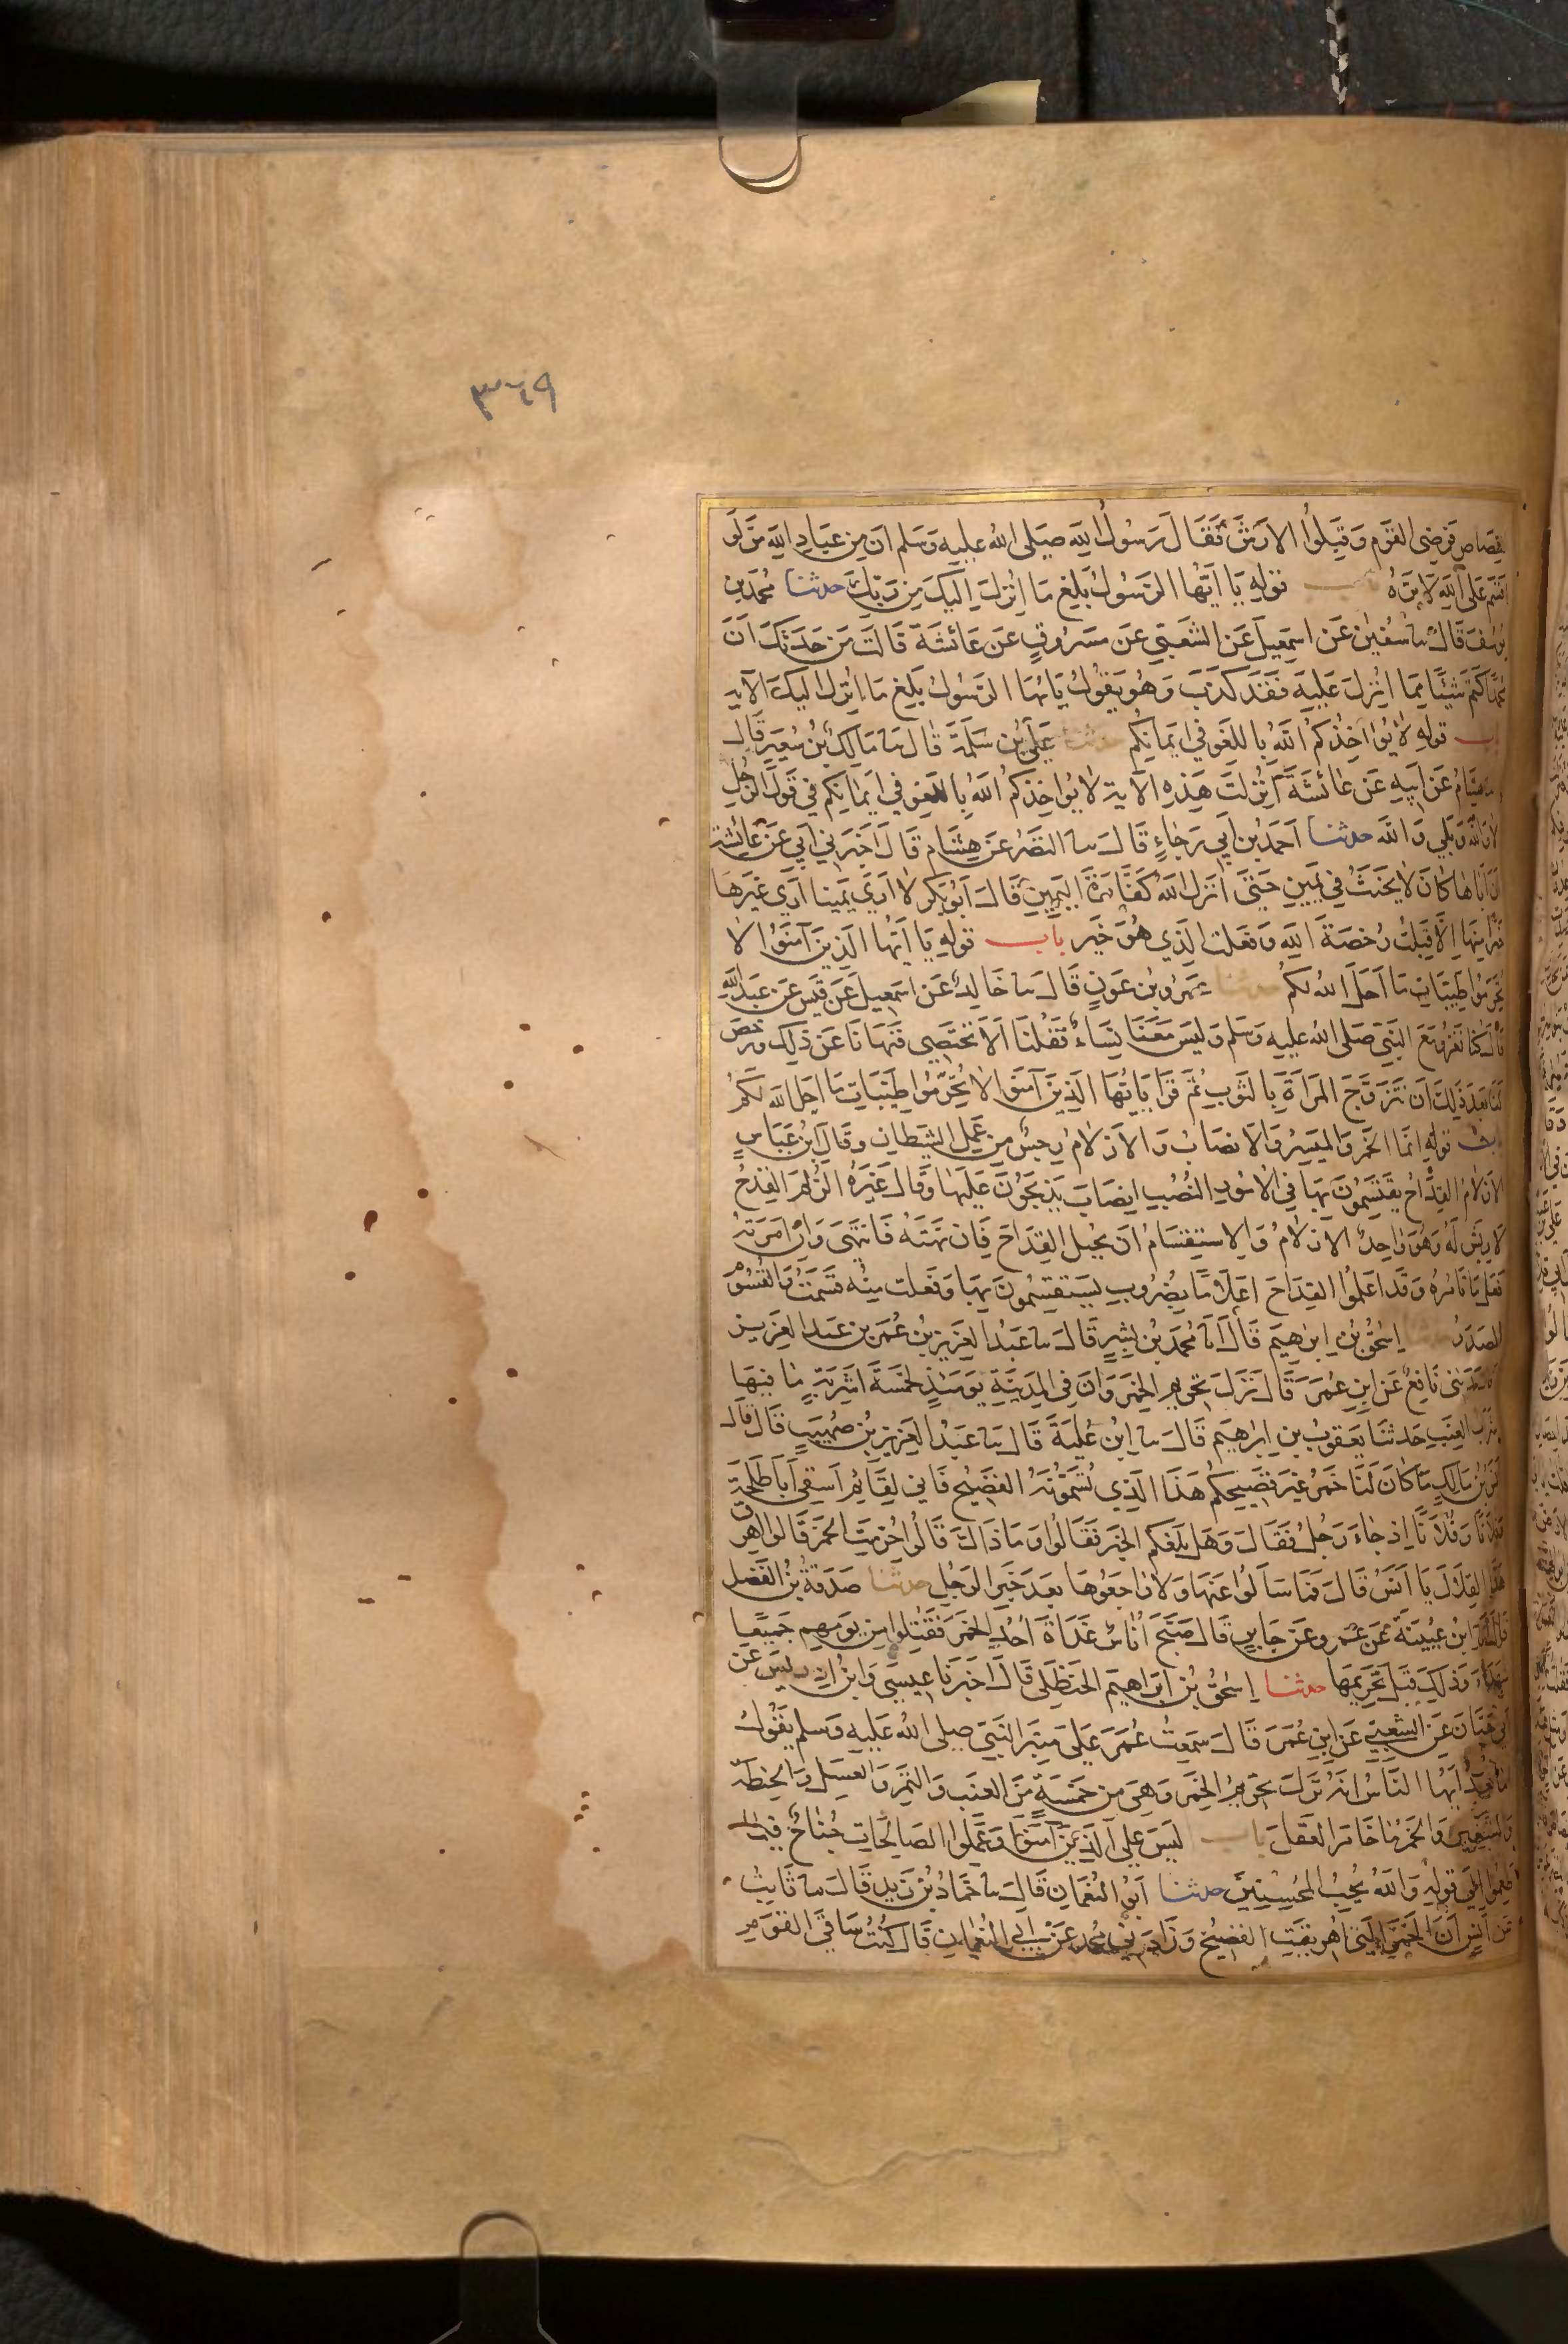 ٣٦٩
القصاص فرضى القوم وقبلوا الارش فقال رسول الله صلى الله عليه وسلم ان من عباد الله من لو
اقسم على الله لابره باب قوله يا ايها الرسول بلغ ما انزل اليك من ربك حدثنا محمد بن
يوسف قال سا سفين عن اسمعيل عن الشعبي عن مسروق عن عائشة قالت من حدثك ان
محمدا كتم شيئا مما انزل عليه فقد كذب وهو يقول يايها الرسول بلغ ما انزل اليك الاية
باب قوله لا يواخذكم الله باللغو في ايمانكم حدثنا على بن سلمة قال سا مالك بن سعير قال
سا هشام عن ابيه عن عائشة انزلت هذه الاية لا يواخذكم الله باللغو في ايمانكم في قول الرجل
لا والله وبلى والله حدثنا احمد بن ابي رجاء قال سا النضر عن هشام قال اخبرني ابي عن عائشة
ان اباها كان لا يحنث في يمين حتى انزل الله كفارة اليمين قال ابو بكر لا ارى يمينا ارى غيرها
خيرا منها الا قبلت رخصة الله وفعلت الذي هو خير باب قوله يا ايها الذين آمنوا لا
تحرموا طيبات ما احل الله لكم حدثنا عمرو بن عون قال سا خالد عن اسمعيل عن قيس عن عبد الله
قال كنا نغزو مع النبي صلى الله عليه وسلم وليس معنا نساء فقلنا الا نختصي فنهانا عن ذلك ورخص
لنا بعد ذلك ان نتزوج المراة بالثوب ثم قرا يايها الذين آمنوا لا تحرموا طيبات ما احل الله لكم
باب قوله انما الخمر والميسر والانصاب والازلام رجس من عمل الشيطان وقال ابن عباس
الازلام القداح يقتسمون بها في الامور النصب انصاب يذبحون عليها وقال غيره الزلم القدح
لا ريش له وهو واحد الازلام والاستقسام ان يجيل القداح فان نهته فانتهى وان امرته
فعل ما تامره وقد اعلموا القداح اعلاما بضروب يستقسمون بها وفعلت منه قسمت والقسوم
المصدر حدثنا اسحق بن ابرهيم قال انا محمد بن بشر قال سا عبد العزيز بن عمر بن عبد العزيز
قال حدثنى نافع عن ابن عمر قال نزل تحريم الخمر وان في المدينة يومئذ لخمسة اشربة ما فيها
شراب العنب حدثنا يعقوب بن ابرهيم قال سا ابن علية قال سا عبد العزيز بن صهيب قال قال
انس بن مالك ما كان لنا خمر غير فضيحكم هذا الذي تسمونه الفضيح فاني لقائم اسقى ابا طلحة
وفلانا وفلانا اذ جاء رجل فقال وهل بلغكم الخبر فقالوا وما ذاك قالوا حرمت الخمر قالوا اهرق
هذه القلال يا انس قال فما سالوا عنها ولا راجعوها بعد خبر الرجل حدثنا صدقة بن الفضل
قال انا ابن عيينة عن عمرو عن جابر قال صبح اناس غداة احد الخمر فقتلوا من يومهم جميعا
شهداء وذلك قبل تحريمها حدثنا اسحق بن ابراهيم الحنظلى قال اخبرنا عيسى وابن ادريس عن
ابي حيان عن الشعبي عن ابن عمر قال سمعت عمر على منبر النبي صلى الله عليه وسلم يقول
اما بعد ايها الناس انه نزل تحريم الخمر وهى من خمسة من العنب والتمر والعسل والحنطة
والشعير والخمر ما خامر العقل باب ليس على الذين آمنوا وعملوا الصالحات جناح فيما
طعموا الى قوله والله يحب المحسنين حدثنا ابو النعمان قال سا حماد بن زيد قال سا ثابت
عن انس ان الخمر التى اهريقت الفضيخ وزادني محمد عن ابي النعمان قال كنت ساقي القوم